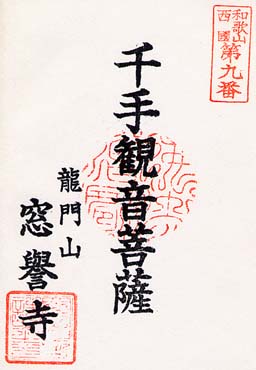 和歌山
西國
第九番
千手観音菩薩
龍門山
窓譽寺